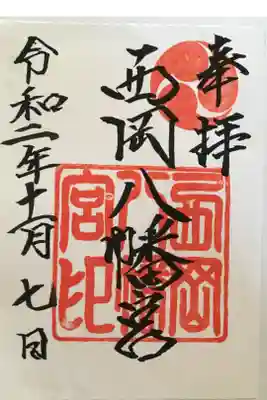 奉拝
西岡八幡宮
西岡八幡宮印
令和二年十一月七日